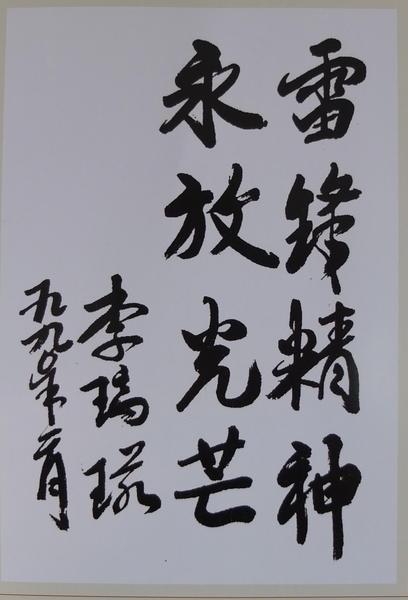 雷锋精神
永放光芒
李瑞环
一九九〇年二月